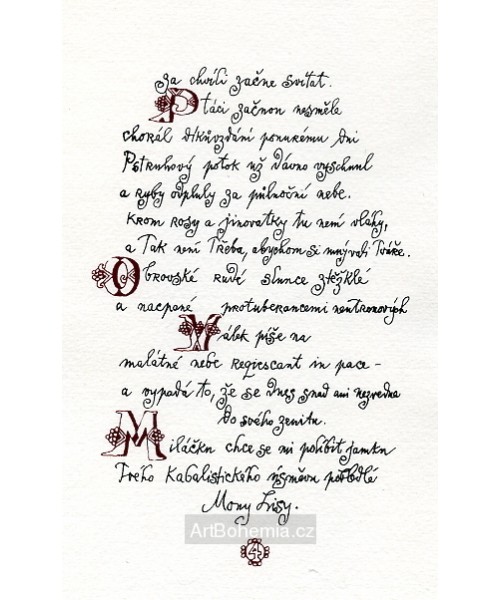 za chvíli začne svítat.
Ptáci začnou nesměle
chorál díkůvzdání ponurému dni
Pstruhový potok už dávno vyschnul
a ryby odpluly za půlnoční nebe.
krom rosy a jinovatky tu není vláhy,
a Tak není Třeba, abychom si smývali Tváře.
Obrovské rudé slunce ztěžklé
a nacpané protuberancemi neutronových
válek píše na
malátné nebe Reqiescant in pace –
a vypadá to, že se dnes snad ani nezvedne
do svého zenitu.
Miláčku chce se mi políbit jamku
Tvého Kabalistického úsměvu posedlé
Mony Lisy.
ArtBohemia.cz
4